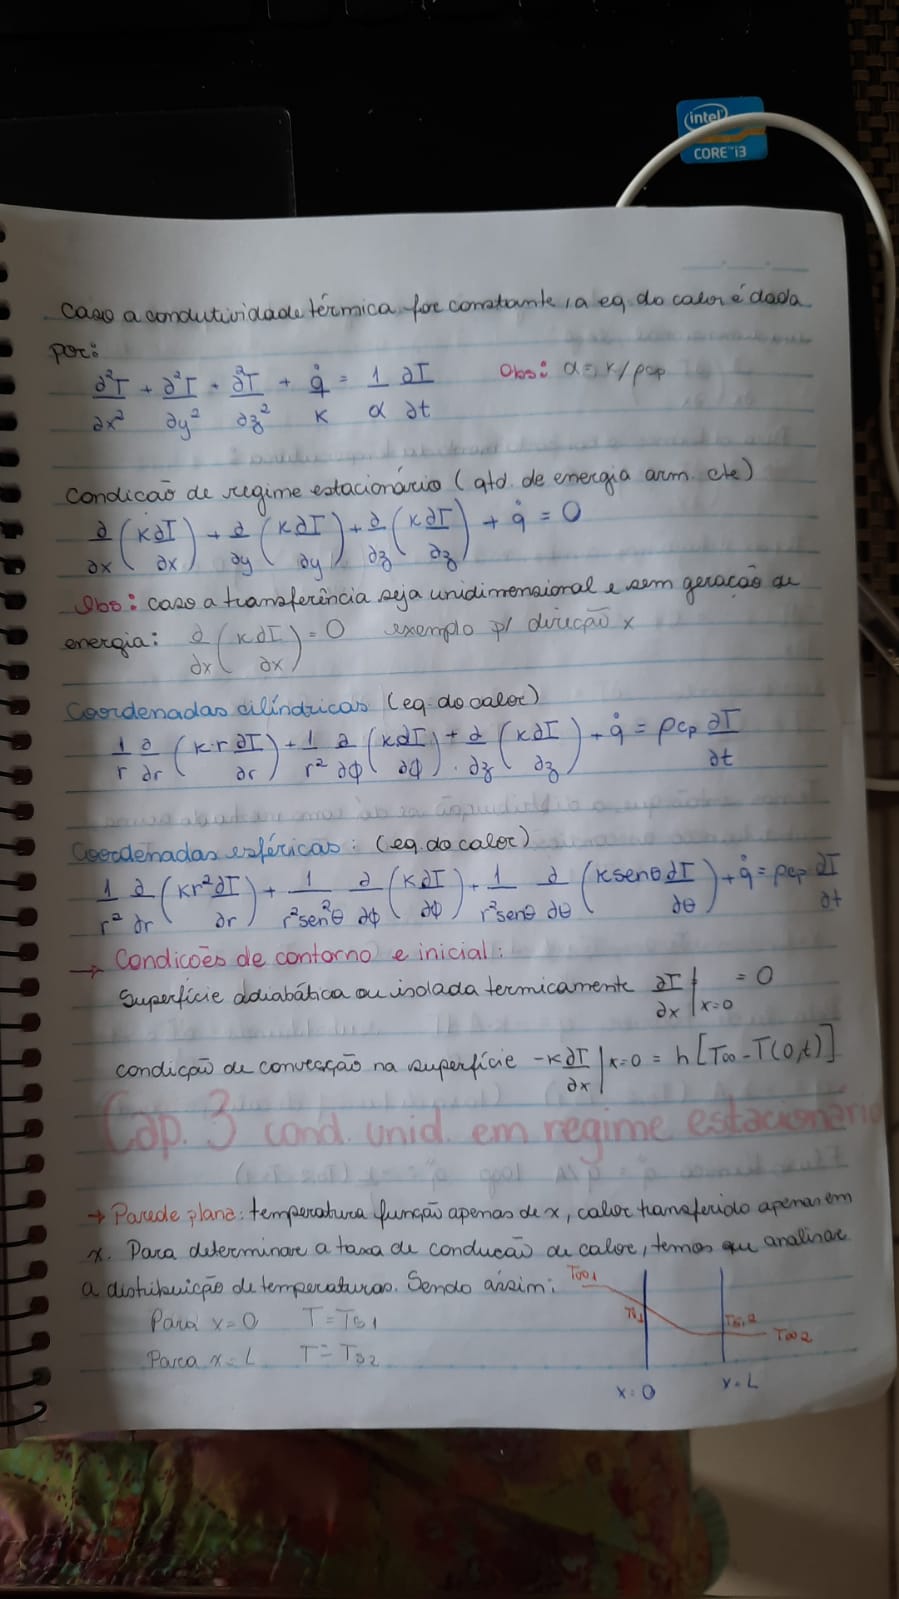 intel
CORE i3
Caso a condutividade térmica for constante, a eq. do calor é dada
por:
∂²T/∂x² + ∂²T/∂y² + ∂²T/∂z² + q̇/k = 1/α ∂T/∂t   Obs: α = k/ρcp
Condicão de regime estacionário (qtd. de energia arm. cte)
∂/∂x (k∂T/∂x) + ∂/∂y (k∂T/∂y) + ∂/∂z (k∂T/∂z) + q̇ = 0
Obs: caso a transferência seja unidimensional e sem geração de
energia: ∂/∂x (k∂T/∂x) = 0 exemplo p/ direção x
Coordenadas cilíndricas (eq. do calor)
1/r ∂/∂r (k.r ∂T/∂r) + 1/r² ∂/∂φ (k∂T/∂φ) + ∂/∂z (k∂T/∂z) + q̇ = ρcp ∂T/∂t
Coordenadas esféricas: (eq. do calor)
1/r² ∂/∂r (kr²∂T/∂r) + 1/r²sen²θ ∂/∂φ (k∂T/∂φ) + 1/r²senθ ∂/∂θ (ksenθ∂T/∂θ) + q̇ = ρcp ∂T/∂t
→ Condicões de contorno e inicial:
Superfície adiabática ou isolada termicamente ∂T/∂x |x=0 = 0
condição de convecção na superfície -k∂T/∂x |x=0 = h[T∞ - T(0,t)]
Cap. 3 cond. unid. em regime estacionário
→ Parede plana: temperatura função apenas de x, calor transferido apenas em
x. Para determinar a taxa de condução de calor, temos que analisar
a distribuição de temperaturas. Sendo assim:
T∞1
Para x=0 T=Ts1
Ts1
Ts,2
T∞2
Para x=L T=Ts2
x=0
x=L